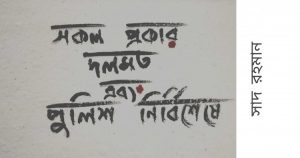 সকল প্রকার
দলমত
এবং
পুলিশ নির্বিশেষে
সাদ রহমান